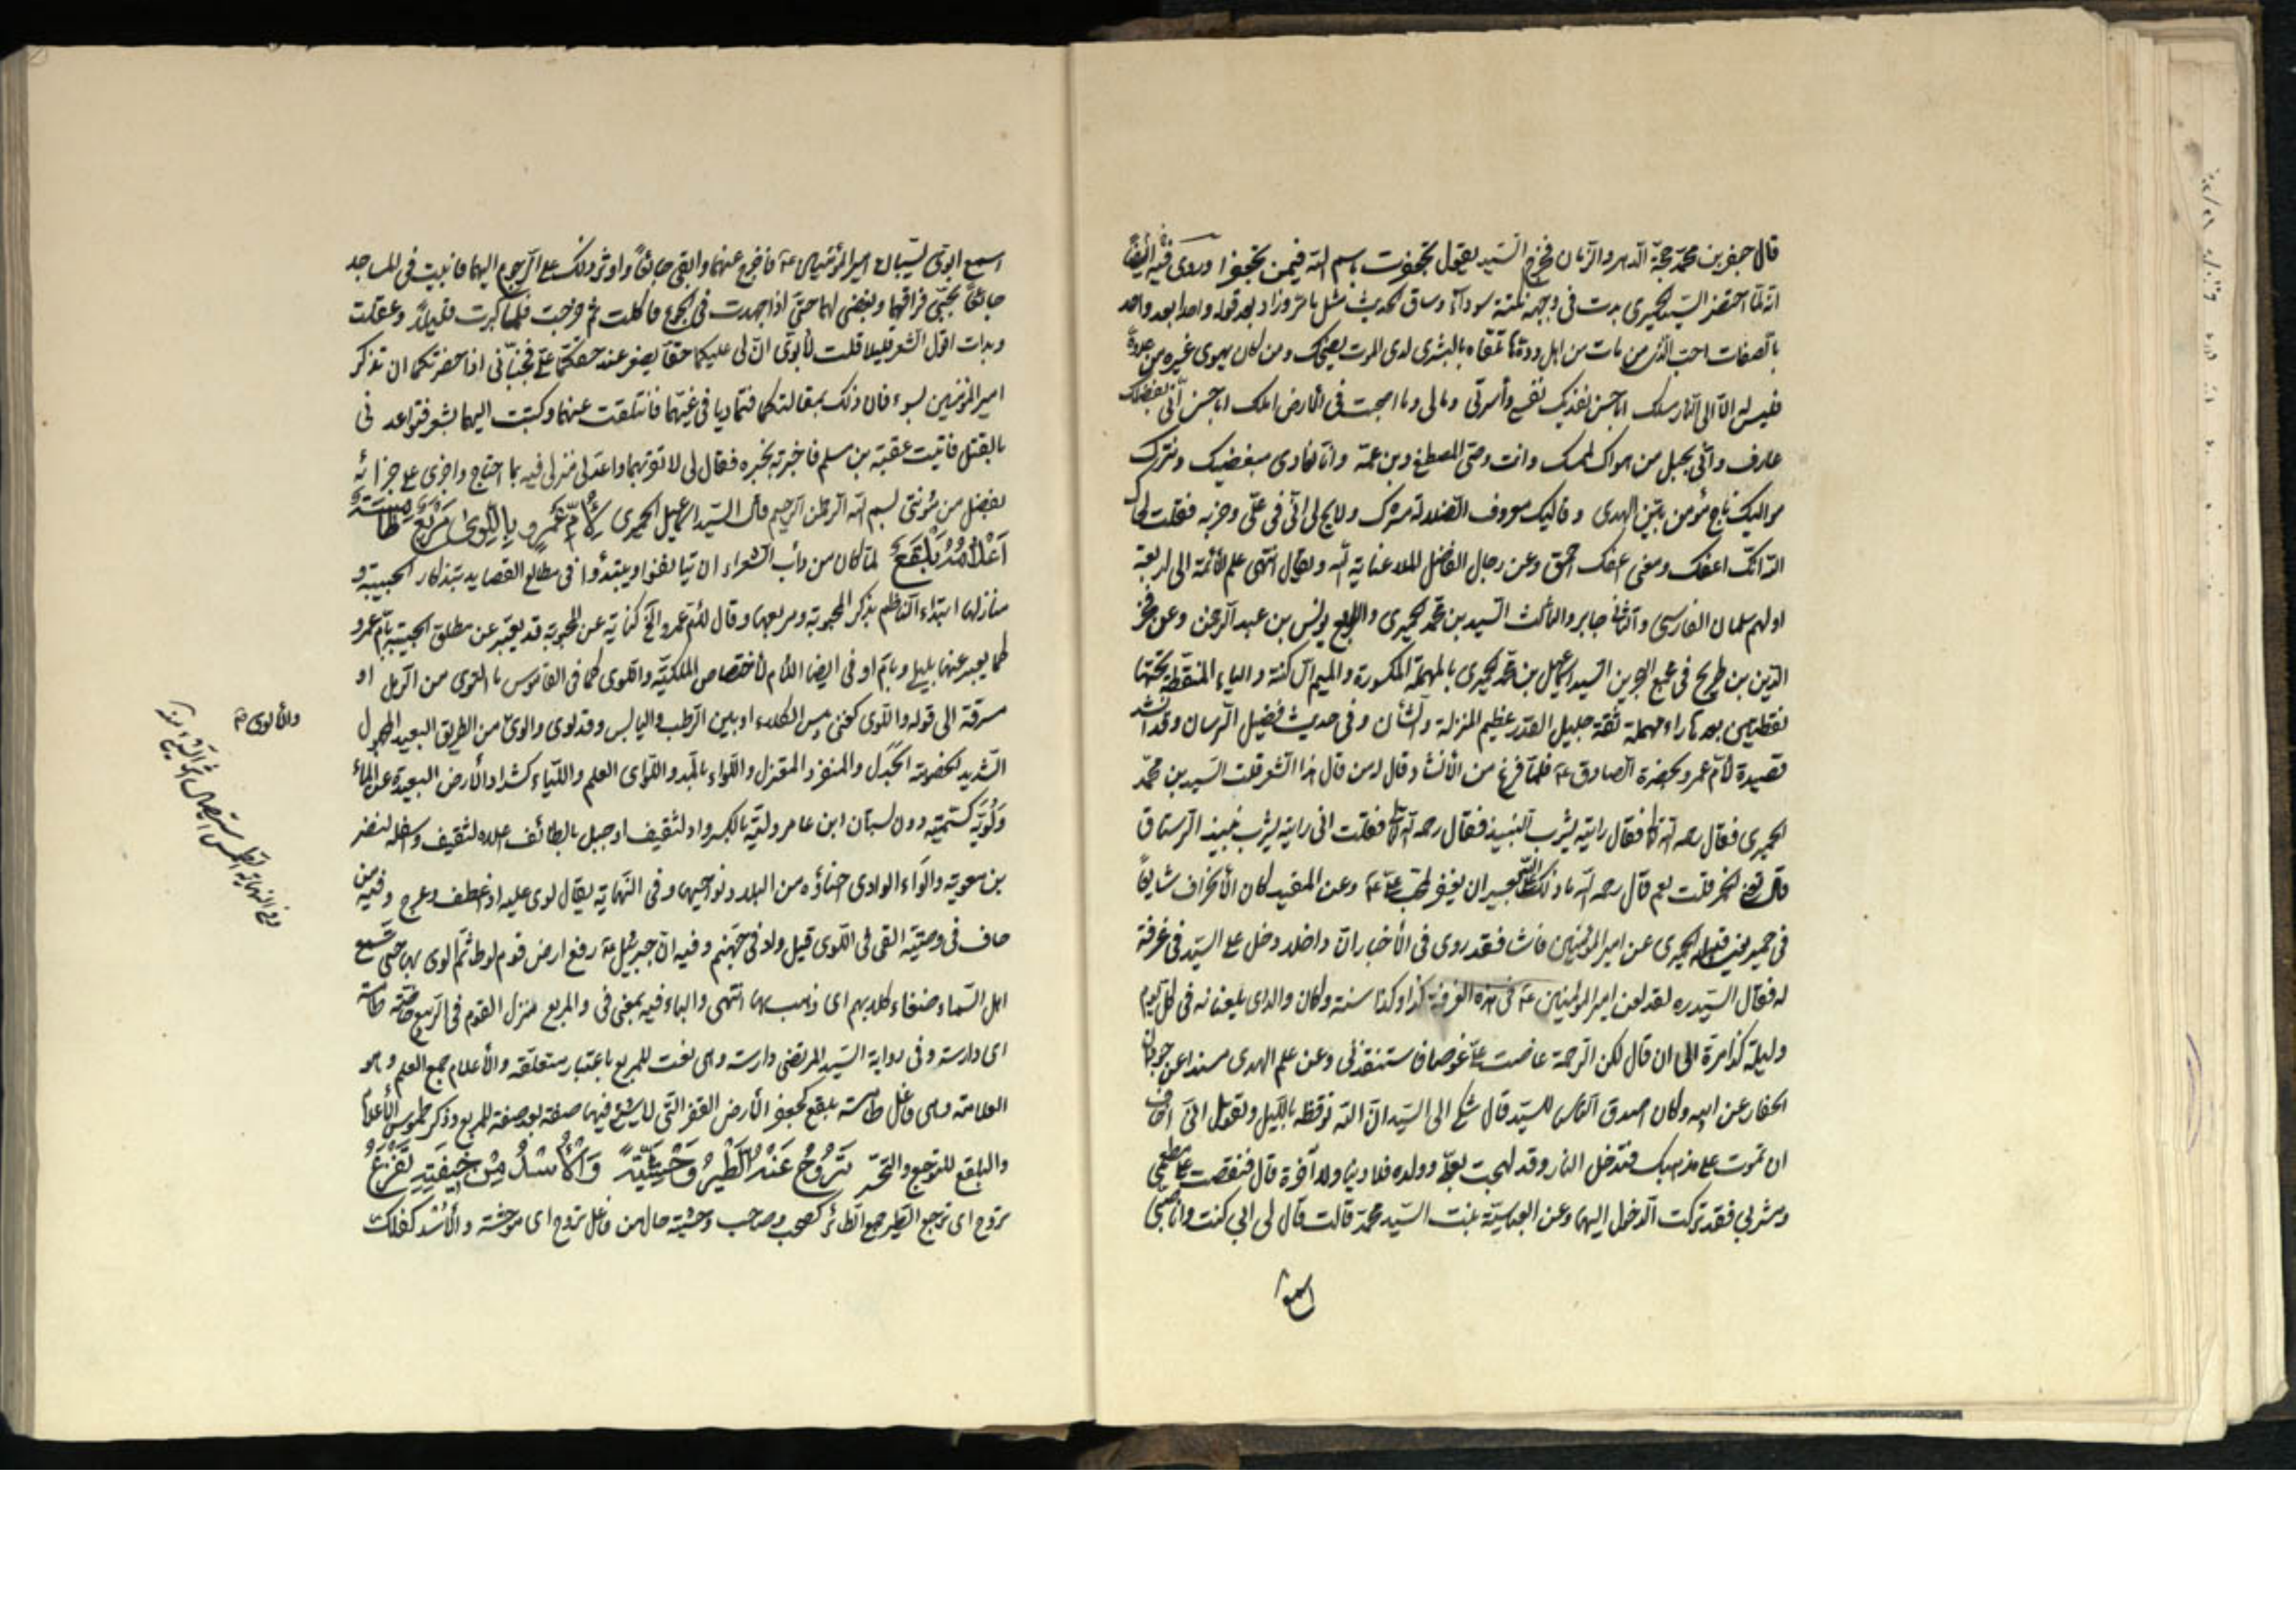 قال جعفر بن محمد حجة الدهر والزمان فخرج السيد يقول تجعفرت باسم الله فيمن تجعفروا وروى فيه ايضا
انه لما احتضر السيد الحميرى بدت فى وجهه نكتة سوداء وساق الحديث مثل ما مر وزاد بعد قوله واحدا بعد واحد
احب الذى من مات من اهل وده تلقاه بالبشرى لدى الموت يضحك ومن كان يهوى غيره من عدوه
فليس له الا الى النار مسلك ابا حسن تفديك نفسى وأسرتى ومالى وما اصبحت فى الارض املك ابا حسن انى بفضلك
عارف وانى بحبل من هواك لممسك وانت وصى المصطفى وبن عمه وانا نعادى مبغضيك ونترك
مواليك ناج مؤمن بين الهدى وقاليك معروف الضلالة مشرك ولاح لى انى فى على وحزبه فقلت لحاك
الله انك اعفك ومعنى اعفك احمق وعن رجال الفاضل الملا عناية الله ويقال انتهى علم الائمة الى اربعة
اولهم سلمان الفارسى والثانى جابر والثالث السيد بن محمد الحميرى والرابع يونس بن عبد الرحمن وعن فخر
الدين بن طريح فى مجمع البحرين السيد اسماعيل بن محمد الحميرى بالمهملة المكسورة والميم الساكنة والياء المنقطة تحتها
نقطتين بعدها راء مهملة ثقة جليل القدر عظيم المنزلة والشأن وفى حديث فضيل الرسان وقد انشد
قصيدة لأم عمرو بحضرة الصادق ع فلما فرغ من الانشاد قال لى من قال هذا الشعر قلت السيد بن محمد
الحميرى فقال رحمه الله فقال رايته يشرب النبيذ فقال رحمه الله فقلت انى رايته يشرب نبيذ الرستاق
قال تعنى الخمر قلت نعم قال رحمه الله وما ذلك على الله بعسير ان يغفر لمحب على ع وعن المفيد كان الانحراف شايعا
فى حمير الحميرى عن امير المؤمنين فقد روى فى الأخبار ان داخلا دخل على السيد فى غرفة
له فقال السيد ره لقد لعن امير المؤمنين ع فى هذه الغرفة كذا وكذا سنة وكان والداى يلعنانه فى كل يوم
وليلة كذا مرة الى ان قال لكن الرحمة غاصت على غوصا فاستنقذنى وعن علم الهدى مسندا عن
الحفار عن ابيه وكان اصدق الناس للسيد قال شكى الى السيد ان امه توقظه بالليل وتقول انى اخاف
ان تموت على مذهبك فتدخل النار وقد لهجت بعلى وولده فلا دنيا ولا آخرة قال فنغصت على مطعمى
ومشربى فقد تركت الدخول اليها وعن العباسية بنت السيد محمد قالت قال لى ابى كنت وانا صبى
اسمع
اسمع ابوى يسبان امير المؤمنين ع فاخرج عنهما وابقى جائعا واوثر ذلك على الرجوع اليهما فابيت فى المساجد
جائعا لحبى فراقهما وبغضى لهما حتى اذا اجهدت فى الجوع ما كلت ثم خرجت فلما كبرت قليلا وعقلت
وبدات اقول الشعر قليلا قلت لأبوى ان لى عليكما حقا يصغر عند حقكما على فجنبانى اذا حضرتكما ان تذكرا
امير المؤمنين بسوء فان ذلك بمقالتكما فتماديا فى غيهما فانتقلت عنهما وكتبت اليهما بشعر فتواعدانى
بالقتل فاتيت عقبة بن مسلم فاخبرته بخبره فقال لى لا تقربهما واعد لى منزلا فيه بما احتاج واجرى على جزائه
بفضل من مؤنتى بسم الله الرحمن الرحيم قال السيد اسمعيل الحميرى لأم عمرو باللوى مربع طامسة
اعلامه بلقع لما كان من دأب الشعراء ان يبتدؤا فى مطالع القصايد بتذكار الحبيبة و
منازلها ابتداء الناظم بذكر المحبوبة ومربعها وقال لأم عمرو الخ كناية عن المحبوبة قد يعبر عن مطلق الحبيبة بأم عمرو
كما يعبر عنها بليلى وبأم اوفى ايضا اللام لأختصاص الملكية واللوى كما فى القاموس ما التوى من الرمل او
مسترقه الى قوله واللوى كغنى يبس الكلاء او بين الرطب واليابس وقد لوى والوى من الطريق البعيد المجهول
الشديد الخصومة الجدل والمنفرد المعتزل واللواء بالمد واللواى العلم واللياء كشداد الأرض البعيدة عن الماء
ولوية كسمية دون لبستان ابن عامر ولية بالكسر واد لثقيف او جبل بالطائف اعلاه لثقيف واسفله لنضر
بن معوية والواء الوادى احناؤه من البلاد ونواحيها وفى النهاية يقال لوى عليه اذا عطف وعرج وفيه من
حاف فى وصيته القى فى اللوى قيل واد فى جهنم وفيه ان جبرئيل ع رفع ارض قوم لوط ثم الوى بها حتى سمع
اهل السماء ضغاء كلابهم اى ذهب بها انتهى والباء فيه بمعنى فى والمربع منزل القوم فى الربيع خاصة طامسة
اى دارسة وفى رواية السيد المرتضى دارسة وهى نعت للمربع باعتبار متعلقه والأعلام جمع العلم وهو
العلامة وهى فاعل طامسة بلقع كجعفر الأرض القفر التى لا شئ فيها صفة بعد صفة للمربع وذكر طموس الأعلام
والبلقع للتوجع والتحسر تروح عنه الطير وحشية والأسد من خيفته تفزع
تروح اى ترجع الطير جمع الطائر كصحب وصاحب وحشية حال من فاعل تروح اى موحشة والأسد كفلك
والألوى